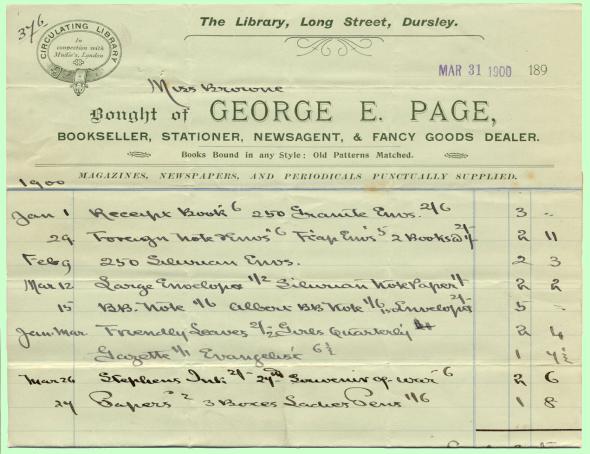 376
The Library, Long Street, Dursley.
CIRCULATING LIBRARY
In
connection with
Mudie's, London
MAR 31 1900 189
Miss Browne
Bought of GEORGE E. PAGE,
BOOKSELLER, STATIONER, NEWSAGENT, & FANCY GOODS DEALER.
Books Bound in any Style: Old Patterns Matched.
MAGAZINES, NEWSPAPERS, AND PERIODICALS PUNCTUALLY SUPPLIED.
1900
Jan 1 Receipt Book 6 250 Granite Envs. 2/6 3 -
29 Foreign Note & Envs 6 Flap Envs 5 2 Books @ 2 11
Feb 9 250 Silurian Envs. 2 3
Mar 12 Large Envelopes 1/2 Silurian Note Paper 1/- 2 2
15 B.B. Note 1/6 Albert BB Note 1/6 Envelopes 2/- 5 -
Jan-Mar Friendly Leaves Girls Quarterly 2 4
Gazette 1/1 Evangelist 6½ 1 7½
Mar 26 Stephens Ink 2/- Souvenir of War 6 2 6
27 Papers 2 3 Boxes Ladies Pens 1/6 1 8